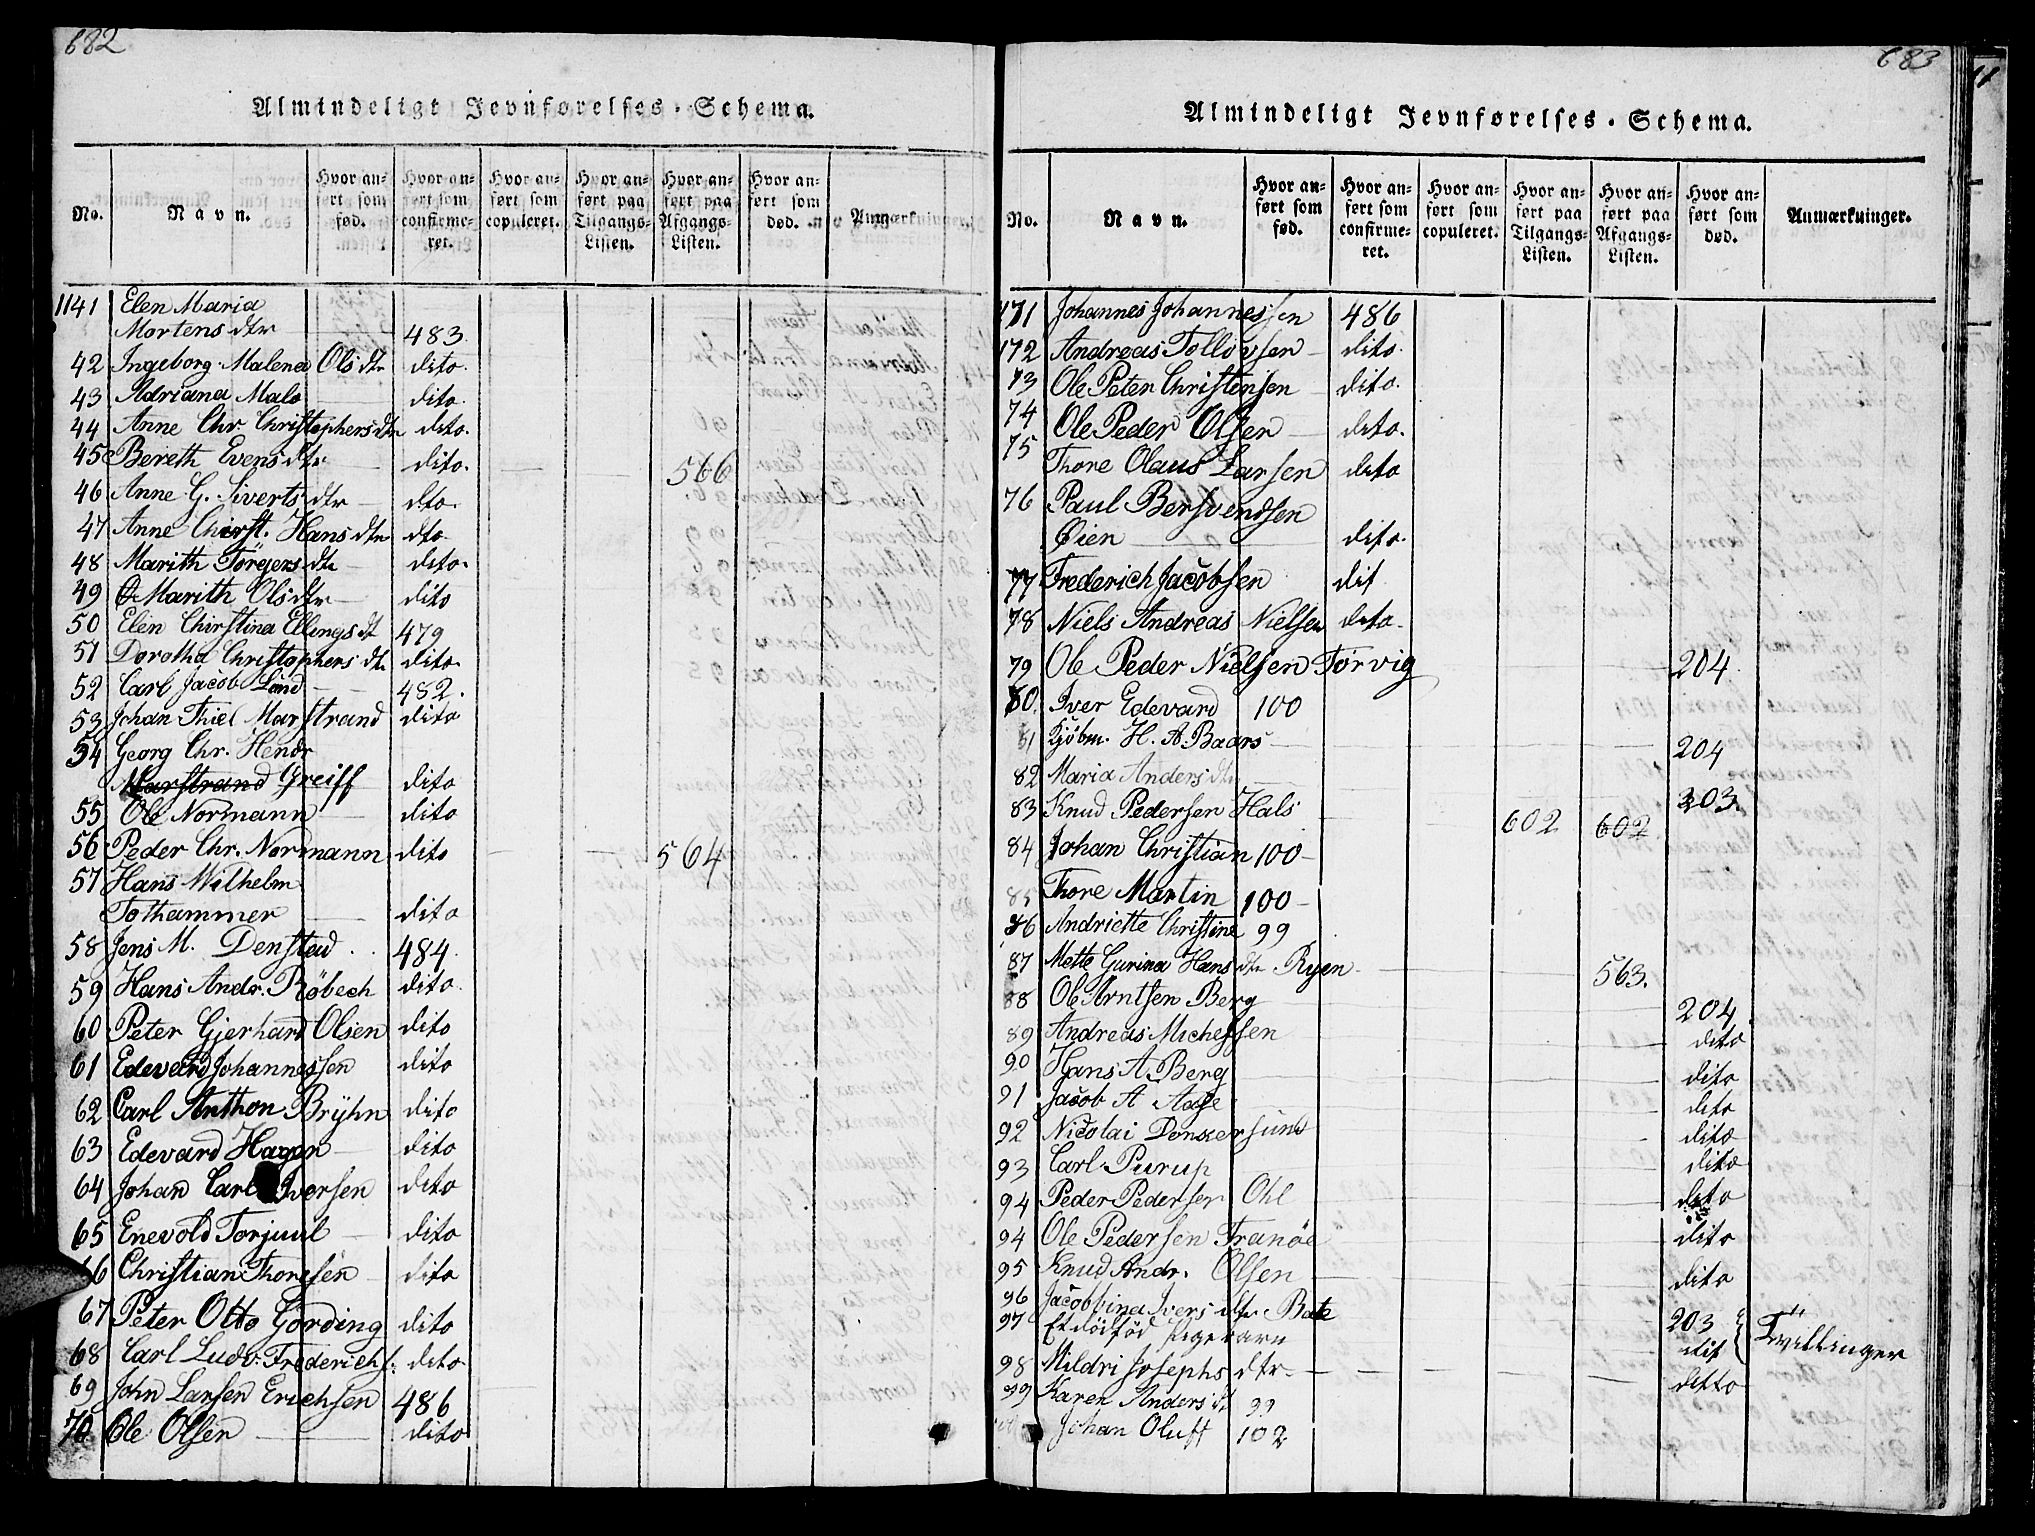 682
Almindeligt Jevnførelses-Schema.
No. Navn. Hvor anført som fød. Hvor anført som confirmeret. Hvor anført som copuleret. Hvor anført paa Tilgangs-Listen. Hvor anført paa Afgangs-Listen. Hvor anført som død. Anmærkninger.
1141 Elen Maria
Mortens dtr 483
42 Ingeborg Malena Ols dtr dito.
43 Adriana Malo dito.
44 Anne Chr. Christophers dtr dito.
45 Bereth Evens dtr dito. 566
46 Anne G. Siverts dtr dto.
47 Anne Chirst. Hans dtr dto.
48 Marith Törgers dtr dito.
49 Marith Ols dtr dito
50 Elen Chirstina Ellings dt 479
51 Dorothd Christophers dtr dito.
52 Carl Jacob Lind 482.
53 Johan Thiel Marstrand dito
54 Georg Chr. Hendr
Marstrand Greiff dito
55 Ole Normann dito
56 Peder Chr. Normann dito 564
57 Hans Wilhelm
Tothammer dito
58 Jens M. Denstad 484
59 Hans Andr. Röbech dito.
60 Peter Gjerhard Olsen dito
61 Edevard Johannessen dito
62 Carl Anthon Brÿhn dito
63 Edevard Hagen dito
64 Johan Carl Iversen dito
65 Enevold Torjuul dito
66 Christian Thoresen dito
67 Peter Otto Gørding dito
68 Carl Ludv. Frederichs. dito
69 John Larsen Erichsen 486
70 Ole Olsen dito
683
Almindeligt Jevnførelses-Schema.
No. Navn. Hvor anført som fød. Hvor anført som confirmeret. Hvor anført som copuleret. Hvor anført paa Tilgangs-Listen. Hvor anført paa Afgangs-Listen. Hvor anført som død. Anmærkninger.
171 Johannes Johannessen 486
172 Andreas Tollovsen dito.
73 Ole Peter Christensen dito.
74 Ole Peder Olsen dito.
75 Thore Olaus Larsen dito
76 Paul Bersvendsen
Øien dito.
77 Frederich Jacobsen dit
78 Niels Andreas Nielsen dito.
79 Ole Peder Nielsen Torvig 204
80. Iver Edevard 100
81 Kjöbm. H. A. Baars 204
82 Maria Anders dtr 203.
83 Knud Pedersen Hals 602 602
84 Johan Christian 100
85 Thore Martin 100
86 Andriette Christine 99
87 Mette Gurina Hans dtr Ryen 563.
88 Ole Arntsen Berg 204
89 Andreas Michelsen dito
90 Hans A. Berg dito
91 Jacob A Aase dito
92 Nicolai Donkersund dito
93 Carl Purup dito
94 Peder Pedersen Ohl dito
94 Ole Pedersen Tranöe dito
95 Knud Andr. Olsen dito
96 Jacobbina Ivers dtr Bate 203 Tvillinger
97 Et dödföd Pigebarn dit
98 Mildri Josephs dtr ditto
99 Karen Anders dt 99
Johan Oluff 102